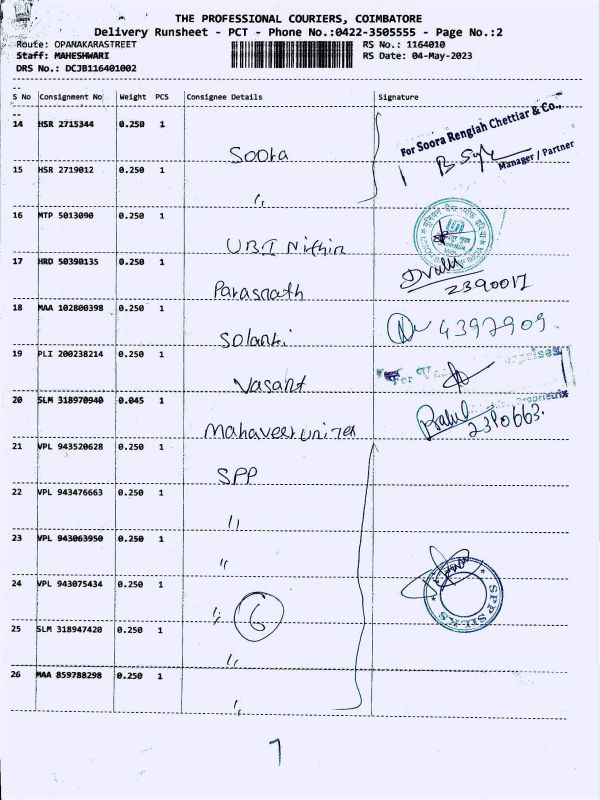 THE PROFESSIONAL COURIERS, COIMBATORE
Delivery Runsheet - PCT - Phone No.:0422-3505555 - Page No.:2
Route: OPANAKARASTREET RS No.: 1164010
Staff: MAHESHWARI RS Date: 04-May-2023
DRS No.: DCJB116401002
S No Consignment No Weight PCS Consignee Details Signature
14 HSR 2715344 0.250 1 Soora For Soora Rengiah Chettiar & Co.,
Manager / Partner
15 HSR 2719012 0.250 1 ,,
16 MTP 5013090 0.250 1 UBI Nithin
17 HRD 50390135 0.250 1 Parasnath 2390017
18 MAA 102800398 0.250 1 Solanki 4397909.
19 PLI 200238214 0.250 1 Vasant For
20 SLM 318970940 0.045 1 Mahaveer unitex Rahul 2390663.
21 VPL 943520628 0.250 1 SPP
22 VPL 943476663 0.250 1 ,,
23 VPL 943063950 0.250 1 ,,
24 VPL 943075434 0.250 1 ,, 6 SPP SILKS
25 SLM 318947420 0.250 1 ,,
26 MAA 859788298 0.250 1 ,,
7